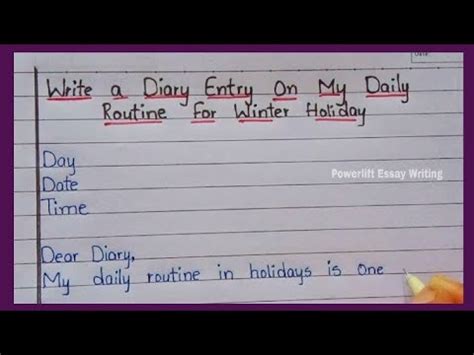 Date:
Write a Diary Entry On My Daily
Routine For Winter Holiday
Powerlift Essay Writing
Day
Date
Time
Dear Diary,
My daily routine in holidays is one